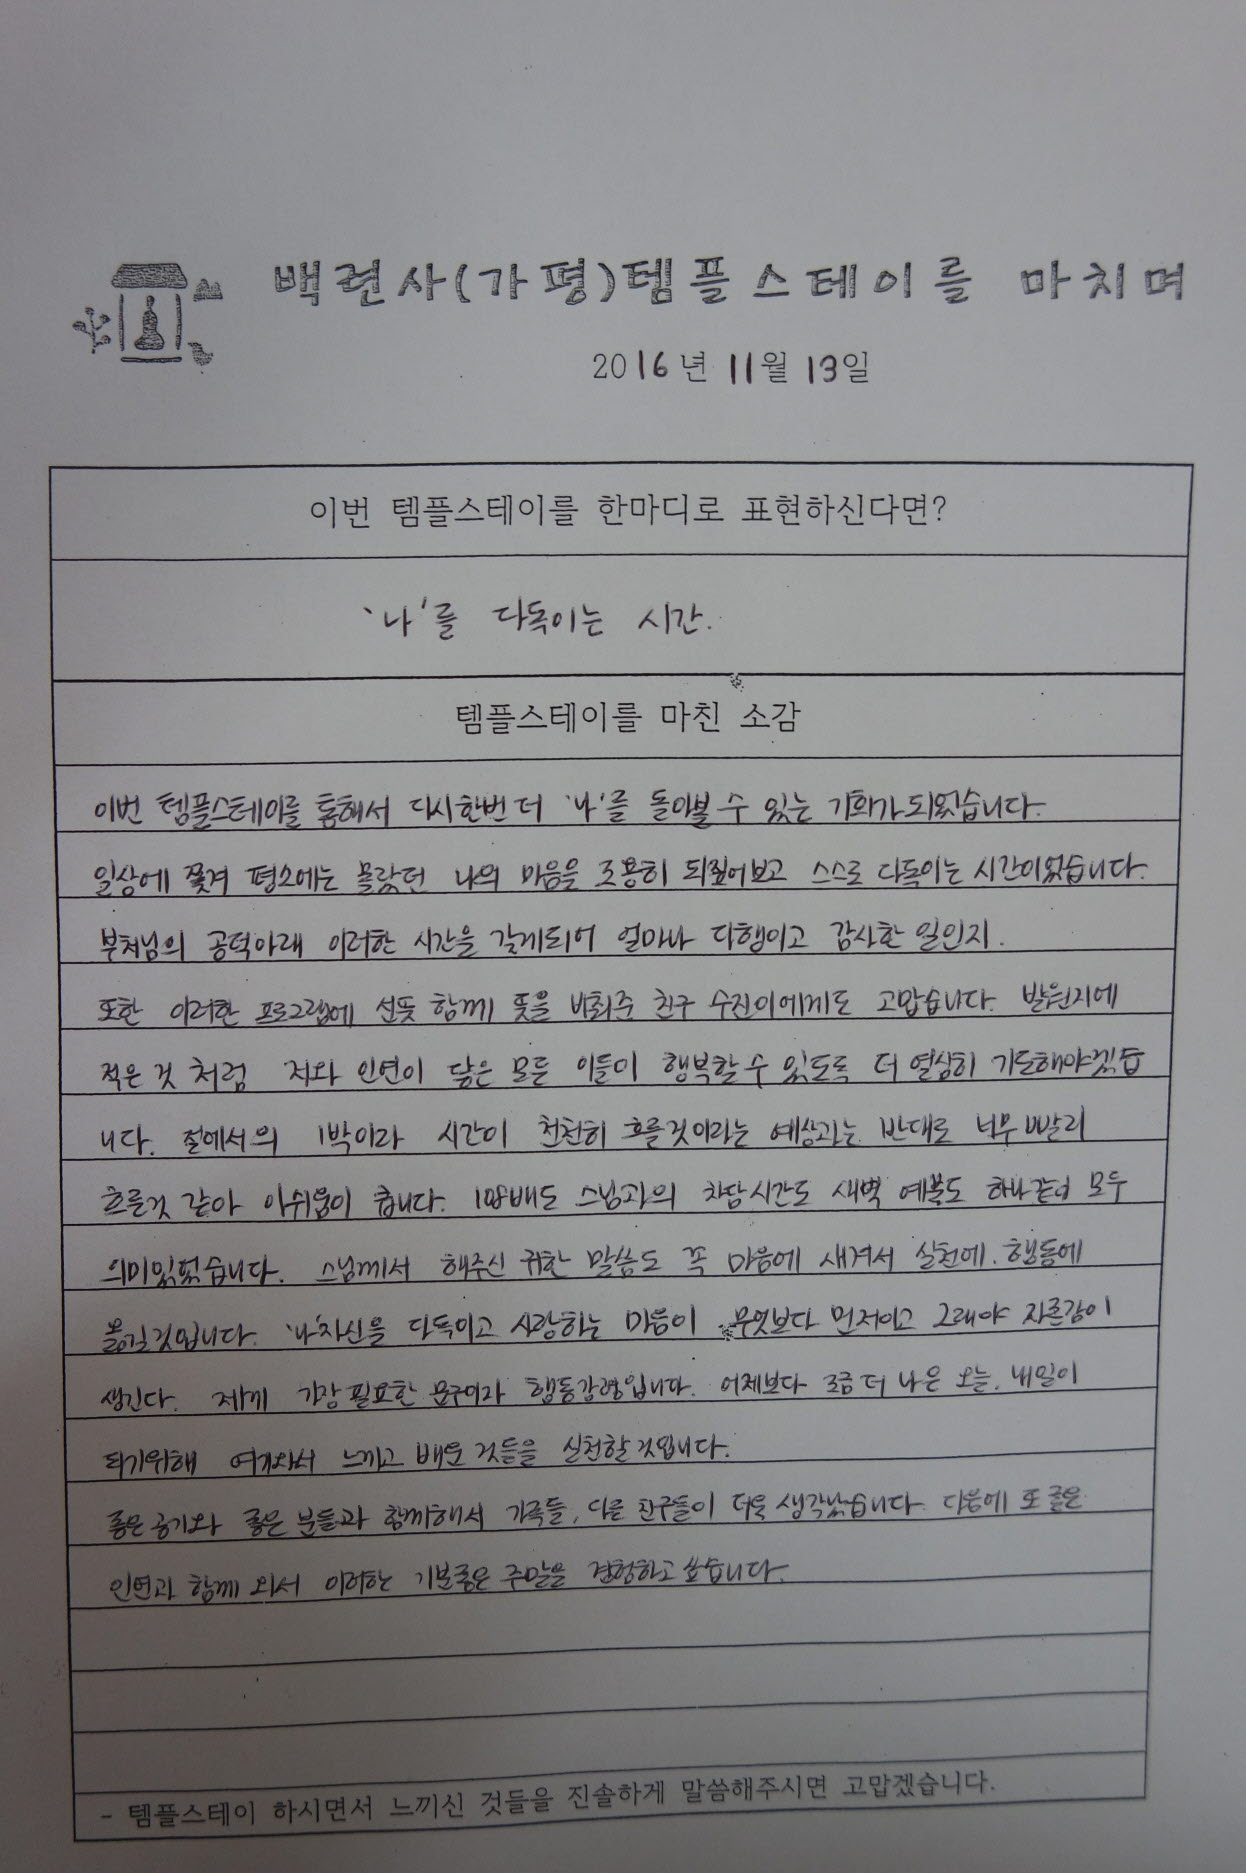 백련사(가평)템플스테이를 마치며
2016년 11월 13일
이번 템플스테이를 한마디로 표현하신다면?
'나'를 다독이는 시간.
템플스테이를 마친 소감
이번 템플스테이를 통해서 다시한번 더 '나'를 돌아볼 수 있는 기회가 되었습니다.
일상에 쫓겨 평소에는 몰랐던 나의 마음을 조용히 되짚어보고 스스로 다독이는 시간이었습니다.
부처님의 공덕아래 이러한 시간을 갖게되어 얼마나 다행이고 감사한 일인지.
또한 이러한 프로그램에 선뜻 함께 뜻을 비춰준 친구 수진이에게도 고맙습니다. 발원지에
적은 것 처럼 저와 인연이 닿은 모든 이들이 행복할 수 있도록 더 열심히 기도해야겠습
니다. 절에서의 1박이라 시간이 천천히 흐를것이라는 예상과는 반대로 너무 빨리
흐른것 같아 아쉬움이 큽니다. 108배도 스님과의 차담시간도 새벽 예불도 하나같이 모두
의미있었습니다. 스님께서 해주신 귀한 말씀도 꼭 마음에 새겨서 실천에. 행동에
옮길것입니다. '나'자신을 다독이고 사랑하는 마음이 무엇보다 먼저이고 그래야 자존감이
생긴다. 제게 가장 필요한 문구이자 행동강령입니다. 어제보다 조금 더 나은 오늘. 내일이
되기위해 여기와서 느끼고 배운 것들을 실천할것입니다.
좋은 공기와 좋은 분들과 함께해서 가족들, 다른 친구들이 더욱 생각났습니다. 다음에 또 좋은
인연과 함께 와서 이러한 기분좋은 주말을 경험하고 싶습니다.
- 템플스테이 하시면서 느끼신 것들을 진솔하게 말씀해주시면 고맙겠습니다.